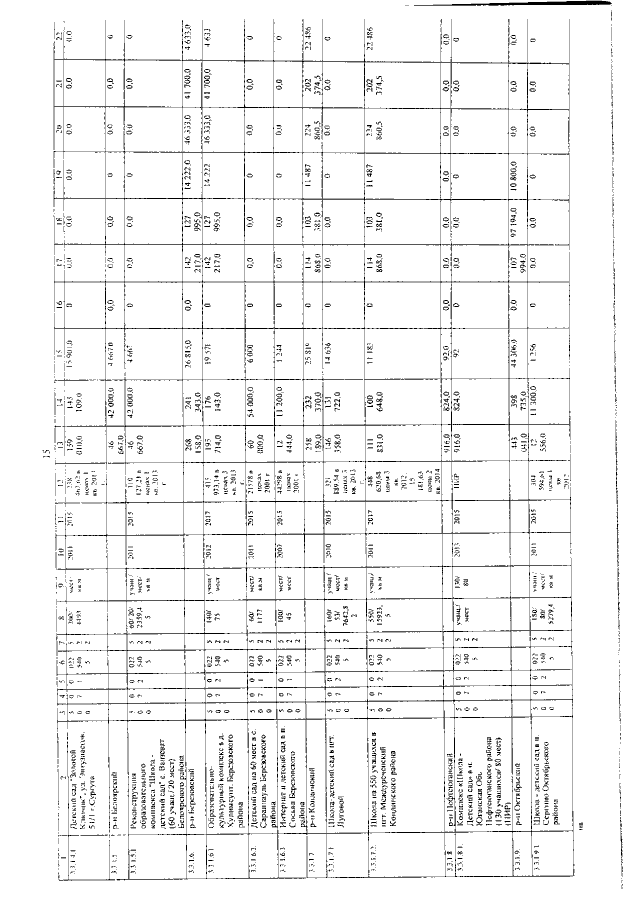 15
1 2 3 4 5 6 7 8 9 10 11 12 13 14 15 16 17 18 19 20 21 22
3.3.1.4.1 Детский сад "Золотой Ключик", ул. Энтузиастов, 51/1 г.Сургута 5 0 0 0 7 0 1 022 540 5 5 2 2 2011 2015 159 010,0 143 109,0 15 901,0 0 0,0 0,0 0,0 0,0 0,0 0,0
3.3.1.5 р-н Белоярский 46 667,0 42 000,0 4 667,0 0,0 0,0 0,0 0,0 0,0 0,0 0
3.3.1.5.1 Реконструкция образовательного комплекса "Школа - детский сад" с. Ванзеват (60 учащ./20 мест) Белоярского района 5 0 0 0 7 0 2 022 540 5 5 2 2 60/20/ 2359,4 учащ/ мест/ кв.м 2011 2015 46 667,0 42 000,0 4 667 0 0,0 0,0 0,0 0,0 0,0 0
3.3.1.6 р-н Березовский 268 158,0 241 343,0 26 815,0 0,0 142 217,0 127 995,0 14 222,0 46 333,0 41 700,0 4 633,0
3.3.1.6.1 Образовательно-культурный комплекс в д. Хулимсунт, Березовского района 5 0 0 0 7 0 2 022 540 5 5 2 2 140/ 75 учащ/ мест 2012 2017 195 714,0 176 143,0 19 571 0 142 217,0 127 995,0 14 222 46 333,0 41 700,0 4 633
3.3.1.6.2 Детский сад на 60 мест в с. Саранпауль Березовского района 5 0 0 0 7 0 1 022 540 5 5 2 2 60/ 1177 мест/ кв.м 2011 2015 60 000,0 54 000,0 6 000 0 0,0 0,0 0,0 0,0 0,0 0
3.3.1.6.3 Интернат и детский сад в п. Сосьва Березовского района 5 0 0 0 7 0 2 022 540 5 5 2 2 100/ 45 мест/ мест 2015 12 444,0 11 200,0 1 244 0 0,0 0,0 0,0 0,0 0,0 0
3.3.1.7 р-н Кондинский 258 189,0 232 370,0 25 819 0 114 868,0 103 381,0 11 487 224 860,5 202 374,5 22 486
3.3.1.7.1 Школа-детский сад в пгт. Луговой 5 0 0 0 7 0 2 022 540 5 5 2 2 160/ 53/ 7642,8 2 учащ/ мест/ кв.м 2010 2015 146 358,0 131 722,0 14 636 0 0,0 0,0 0,0 0,0 0,0 0,0
3.3.1.7.2. Школа на 550 учащихся в пгт. Междуреченский Кондинского района 5 0 0 0 7 0 2 022 540 5 5 2 2 550/ 15923, 5 учащ./ кв.м 2011 2017 111 831,0 100 648,0 11 183 0 114 868,0 103 381,0 11 487 224 860,5 202 374,5 22 486
3.3.1.8 р-н Нефтеюганский 916,0 824,0 92,0 0,0 0,0 0,0 0,0 0,0 0,0 0,0
3.3.1.8.1 Комплекс «Школа - Детский сад» в п. Юганская Обь, Нефтеюганского района (130 учащихся/ 80 мест) (ПИР) 5 0 0 0 7 0 2 022 540 5 5 2 2 учащ./ мест 130/ 80 2013 2015 ПИР 916,0 824,0 92 0 0,0 0,0 0 0,0 0,0 0
3.3.1.9. р-н Октябрьский 443 041,0 398 735,0 44 306,0 0,0 107 994,0 97 194,0 10 800,0 0,0 0,0 0,0
3.3.1.9.1 Школа - детский сад в п. Сергино Октябрьского района 5 0 0 0 7 0 2 022 540 5 5 2 2 150/ 80/ 5279,4 учащ/ мест/ кв.м 2011 2015 12 556,0 11 300,0 1 256 0 0,0 0,0 0 0,0 0,0 0